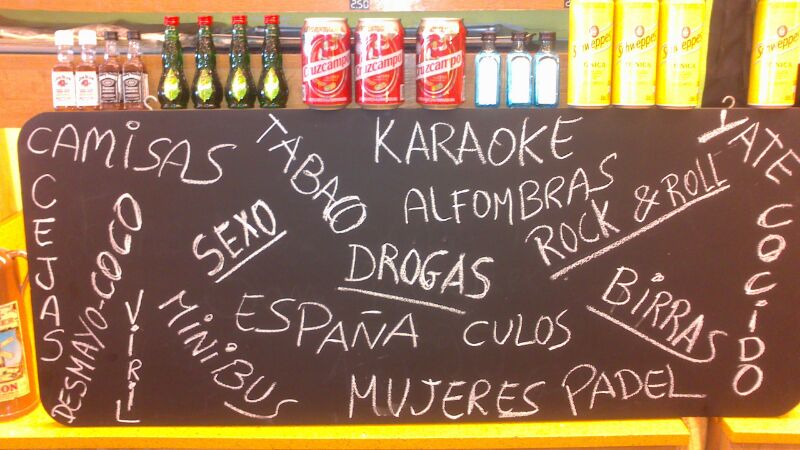 2.50
Cruzcampo
Cruzcampo
Cruzcampo
Schweppes
TONICA
Schweppes
TONICA
Schweppes
TONICA
Schweppes
CAMISAS
TABACO
KARAOKE
YATE
ALFOMBRAS
ROCK & ROLL
CEJAS
DESMAYO-COCO
SEXO
DROGAS
BIRRAS
COCIDO
VIRIL
MINIBUS
ESPAÑA
CULOS
MUJERES
PADEL